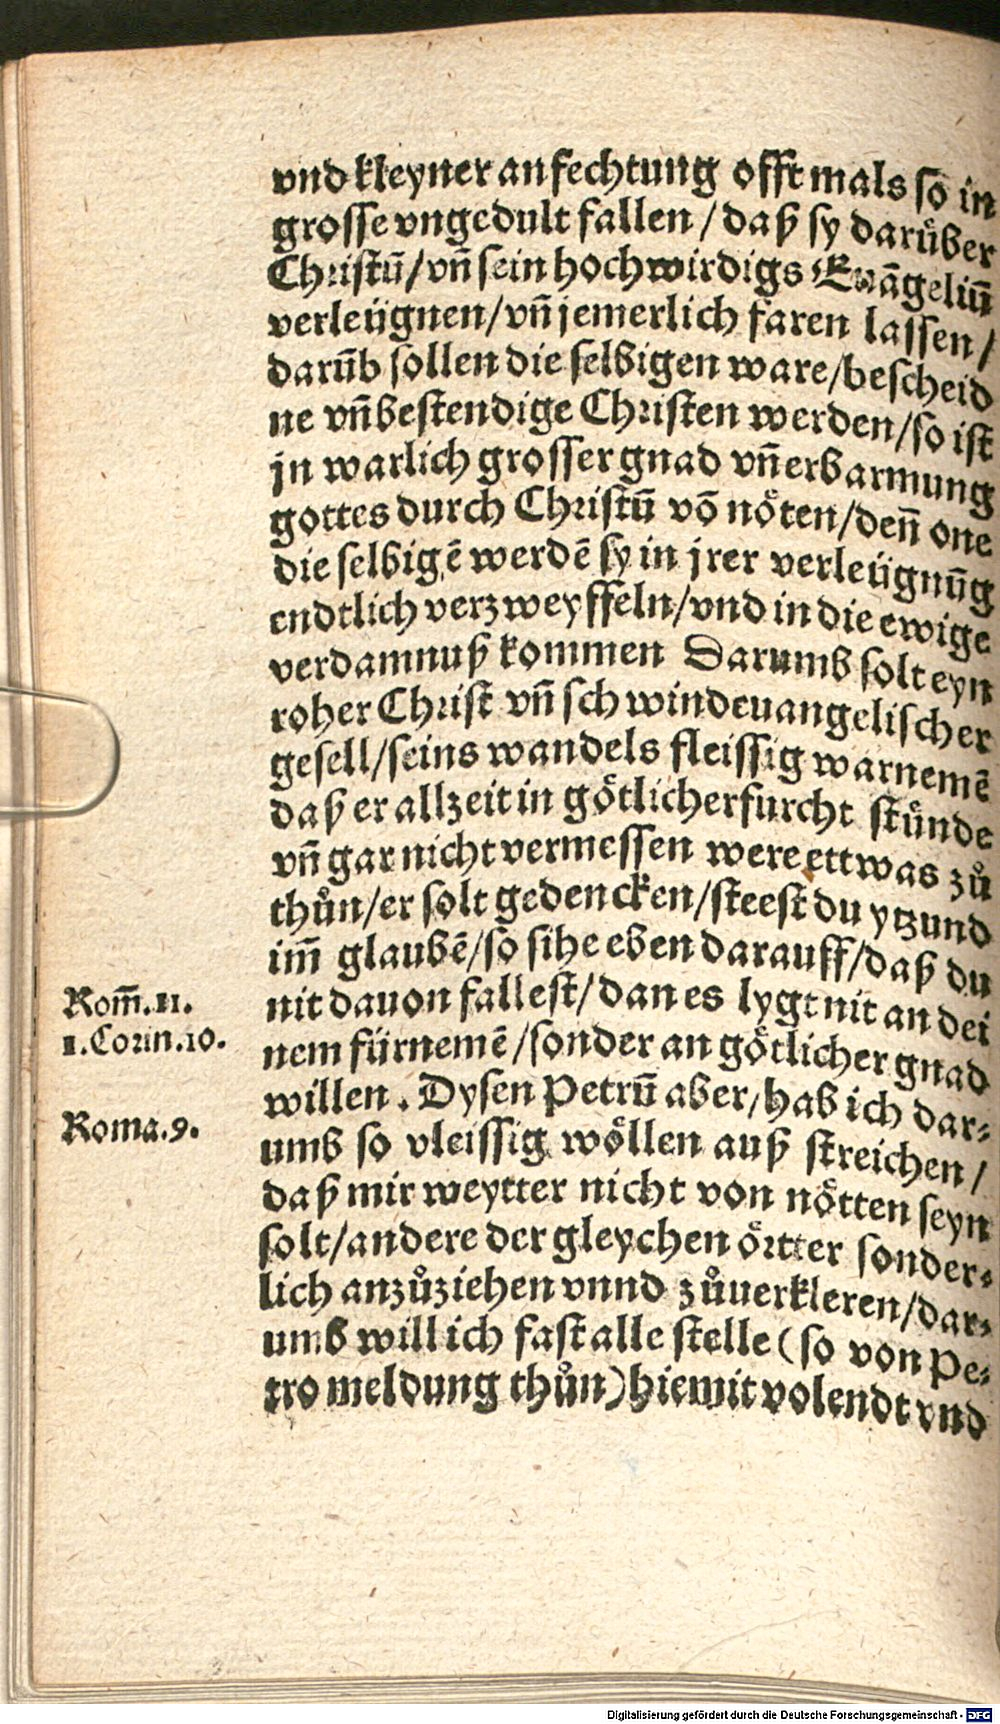 vnd kleyner anfechtung offt mals so in
grosse vngedult fallen / daß sy darůber
Christū/vñ sein hochwirdigs Euāgeliū
verleügnen/vñ jemerlich faren lassen /
darūb sollen die selbigen ware/bescheid
ne vñ bestendige Christen werden/so ist
jn warlich grosser gnad vñ erbarmung
gottes durch Christū vō nöten/deñ one
die selbigē werdē sy in jrer verleügnūg
endtlich verzweyffeln/vnd in die ewige
verdamnuß kommen Darumb solt eyn
roher Christ vñ schwindeuangelischer
gesell/seins wandels fleissig warnemē
daß er allzeit in götlicher furcht stünde
vñ gar nicht vermessen were ettwas zů
thůn/er solt gedencken/steest du ytzund
im̄ glaubē/so sihe eben darauff/daß du
nit dauon fallest/dan es lygt nit an dei
nem fürnemē/sonder an götlicher gnad
willen. Dysen Petrū aber, hab ich dar⸗
umb so vleissig wöllen auß streichen /
daß mir weytter nicht von nötten seyn
solt/andere der gleychen örtter sonder⸗
lich anzůziehen vnnd zůuerkleren/dar⸗
umb will ich fast alle stelle (so von Pe⸗
tro meldung thůn) hiemit volendt vnd
Rom̄.11.
1.Corin.10.
Roma.9.
Digitalisierung gefördert durch die Deutsche Forschungsgemeinschaft - DFG